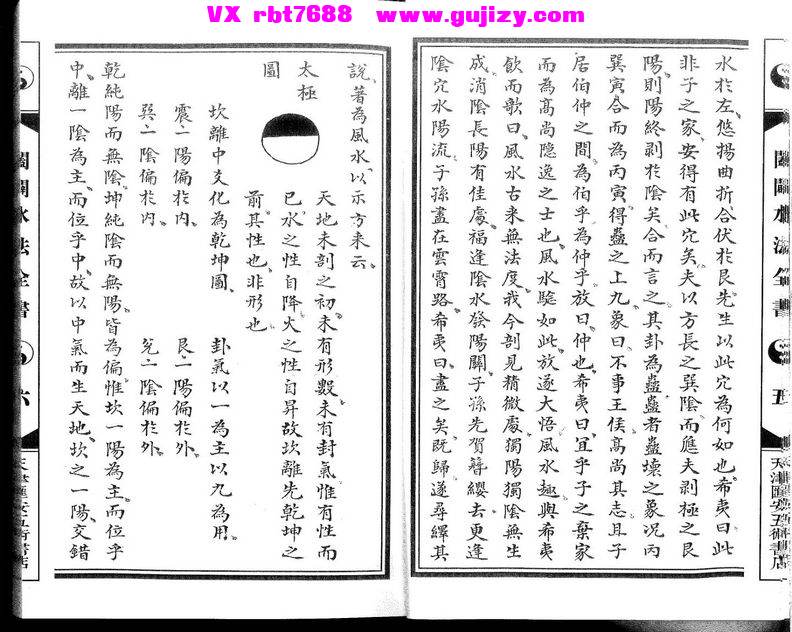 VX rbt7688 www.gujizy.com
水於左、悠揚曲折、合伏於艮、先生以此穴為何如也、希夷曰、此
非子之家、安得有此穴矣、夫以方長之巽陰、而應夫剥極之艮
陽、則陽終剥於陰矣、合而言之、其卦為蠱、蠱者、蠱壞之象、況丙
巽寅合而為丙寅、得蠱之上九、象曰、不事王侯、高尚其志、且子
居伯仲之間、為伯乎、為仲乎、放曰、仲也、希夷曰、宜乎子之棄家
而為高尚隱逸之士也、風水驗如此、放遂大悟風水趣、與希夷
飲而歌曰、風水古来無法度、我今剖見精微處、獨陽獨陰無生
成、消陰長陽有佳處、福逢陰水發陽關、子孫先賀簪纓去、更逢
陰穴水陽流、子孫盡在雲霄路、希夷曰、盡之矣、既歸、遂尋繹其
闔闢水法全書
五
天津匯安五術書店
說、著為風水、以示方来云、
太極
圖
天地未剖之初、未有形數、未有卦氣、惟有性而
已、水之性自降、火之性自昇、故坎離先乾坤之
前、其性也、非形也、
坎離中交化為乾坤圖、
卦氣以一為主、以九為用、
震一陽偏於內、
艮一陽偏於外、
巽一陰偏於內、
兌一陰偏於外、
乾純陽而無陰、坤純陰而無陽、皆為偏、惟坎一陽為主、而位乎
中、離一陰為主、而位乎中、故以中氣而生天地、坎之一陽、交錯
闔闢水法全書
六